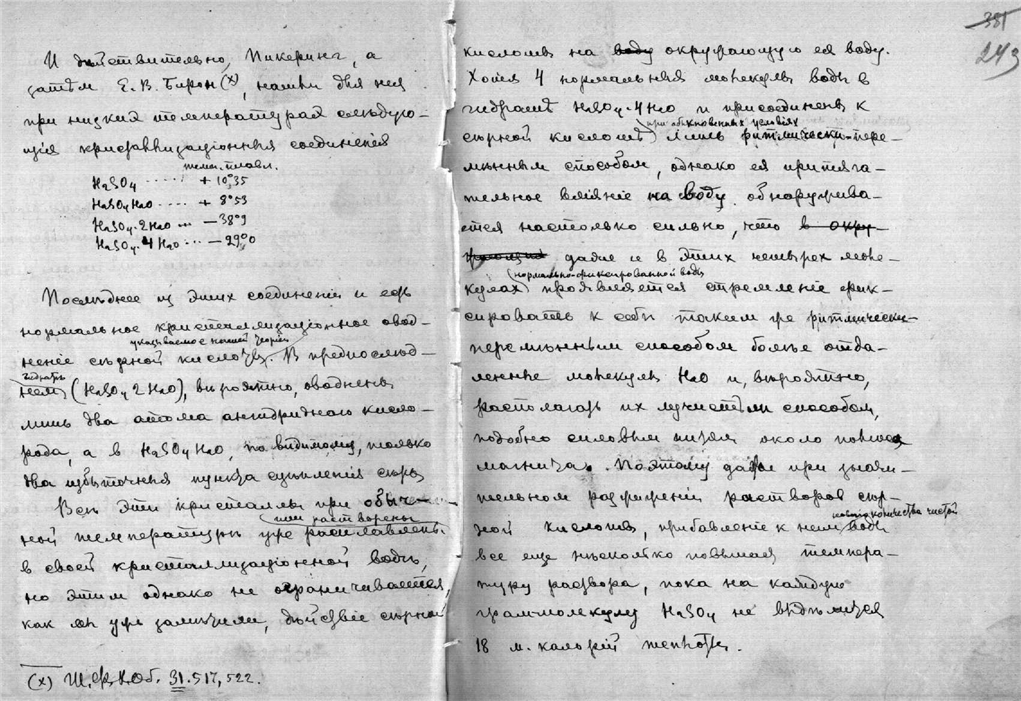 И дѣйствительно, Пикеринг, а
затѣм Е. В. Бирон (х), нашли для нея
при низких температурах слѣдую-
щія кристаллизаціонныя соединенія
темп. плавл.
H2SO4 ..... + 10°,35
H2SO4 H2O .... + 8°53
H2SO4. 2 H2O ... — 38°9
H2SO4. 4 H2O ... — 29°,0
Послѣднее из этих соединеній и есть
нормальное кристаллизаціонное овод-
указываемое нашей теоріей
ненее сѣрной кислоты. В предпослѣд-
нем (H2SO4 2 H2O), вѣроятно, оводнены
лишь два атома ангидриднаго кисло-
рода, а в H2SO4 H2O, по видимому, только
два избыточныя пункта сцѣпленія сѣры
Всѣ эти кристаллы при обыч-
или растворены
ной температурѣ уже расплавлены
в своей кристаллизаціонной водѣ,
но этим однако не ограничивается
как мы уже замѣтили, дѣйствіе сѣрной
(х) Ж. Ф. Х. Об. 31. 517, 522.
381
243
кислоты на воду окружающую ея воду.
Хотя 4 нормальныя молекулы воды в
гидратѣ H2SO4. 4 H2O и присоединены к
при обыкновенных условіях
сѣрной кислотѣ лишь ритмически-пере-
мѣнным способом, однако ея притяга-
тельное вліяніе на воду обнаружива-
ется настолько сильно, что в окру-
даже и в этих четырех моле-
(нормально-фиксированной воды
кулах) проявляется стремленіе фик-
сировать к себѣ таким же ритмически-
перемѣнным способом болѣе отда-
ленныя молекулы H2O и, вѣроятно,
располагать их лучистым способом,
подобно силовым нитям около полюса
магнита. Поэтому даже при значи-
тельном разжиженіи растворов сѣр-
новаго количества чистой
ной кислоты, прибавленіе к ним воды
все еще нѣсколько повышает темпера-
туру раствора, пока на каждую
грам-молекулу H2SO4 не выдѣлится
18 м. калорій теплоты.